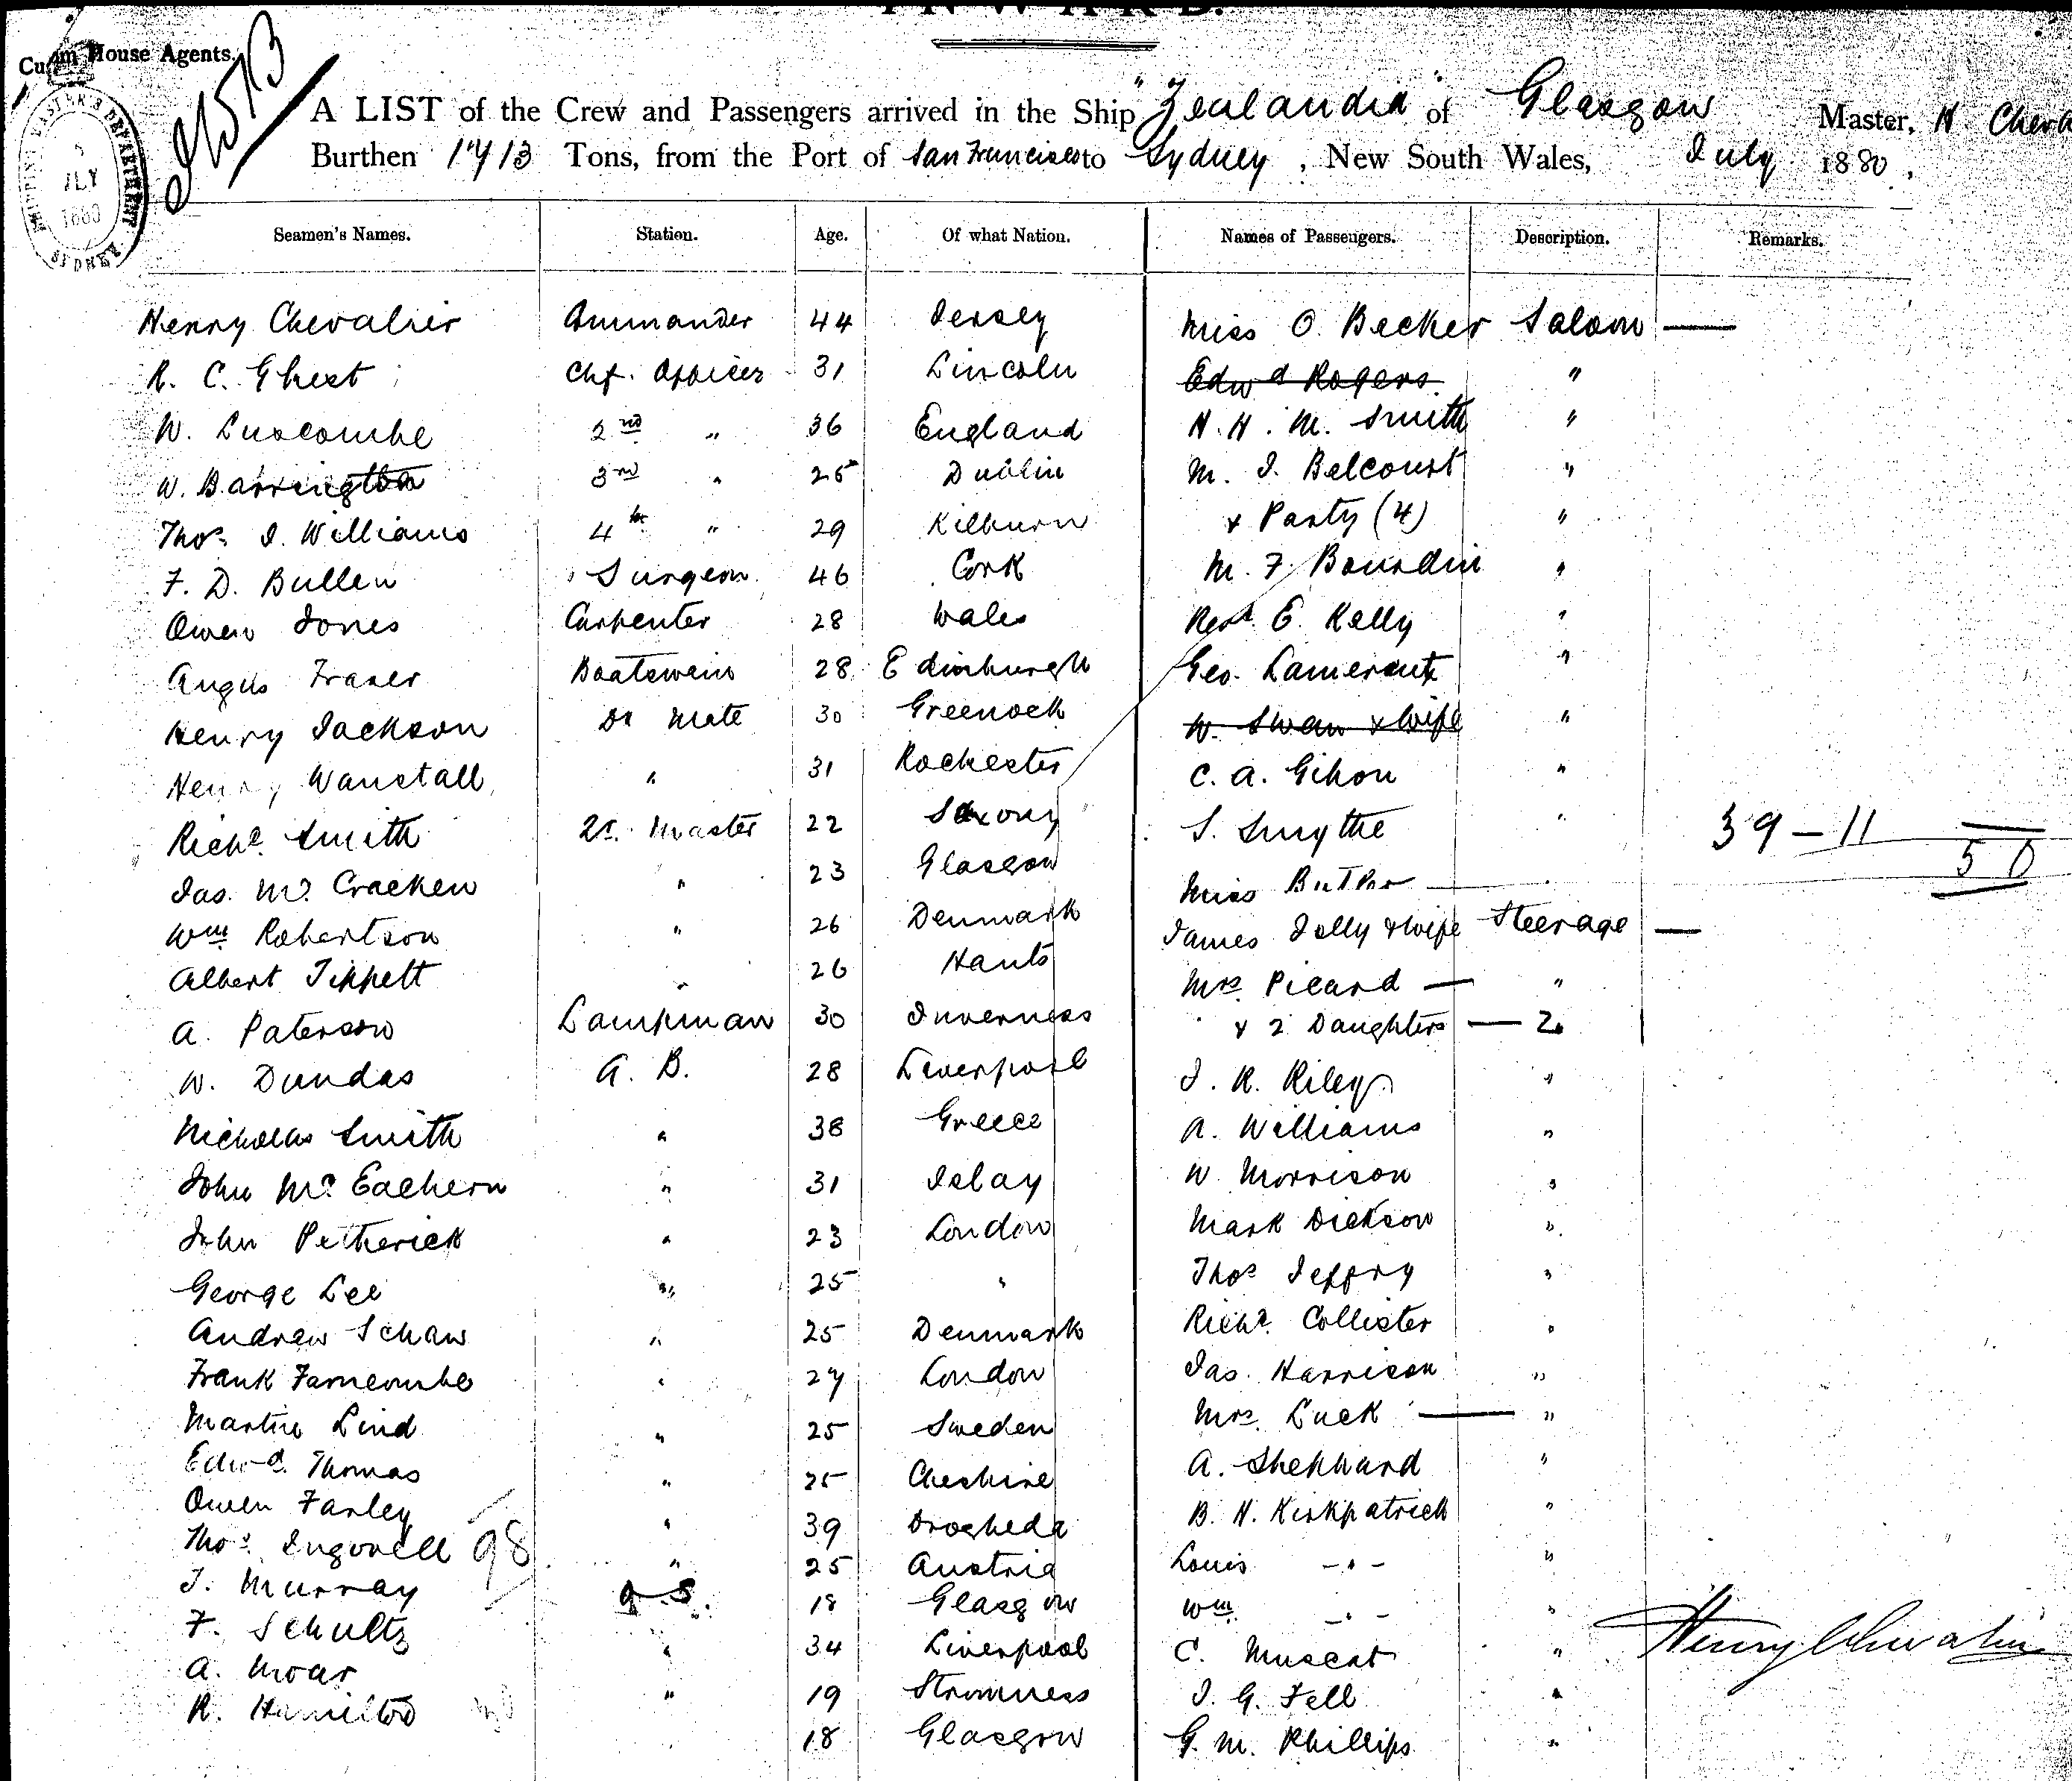 INWARD.
Custom House Agents.
A LIST of the Crew and Passengers arrived in the Ship "Zealandia" of Glasgow Master, H. Cheva
Burthen Tons, from the Port of San Francisco to Sydney, New South Wales, July 1880,
Seamen's Names. Station. Age. Of what Nation. Names of Passengers. Description. Remarks.
Henry Chevalier Commander 44 Jersey Miss O. Becker Saloon —
R. C. Ghest Chf. Officer 31 Lincoln Edwd Rogers "
W. Luscombe 2nd " 36 England H. H. M. Smith "
W. Barrington 3rd " 25 Dublin M. J. Belcourt "
Thos. J. Williams 4th " 29 Kilburn & Party (4) "
F. D. Bullen Surgeon 46 Cork M. F. Bourdin "
Owen Jones Carpenter 28 Wales Revd. E. Kelly "
Angus Fraser Boatswain 28 Edinburgh Geo. "
Henry Jackson Do Mate 30 Greenock W. Swan & Wife "
Henry Wanstall " 31 Rochester C. A. Gihon "
Richd. Smith Qr. Master 22 Saxony S. Smythe " 39 – 11
Jas. Mc. Cracken " 23 Glasgow Miss Butler — 50
Wm Robertson " 26 Denmark James Jelly & Wife Steerage —
Albert Tippett " 26 Hants Mrs. Picard — "
A. Paterson Lampman 30 Inverness & 2 Daughters — 2
W. Dundas A. B. 28 Liverpool J. R. Riley "
Nicholas Smith " 38 Greece A. Williams "
John Mc. Eachern " 31 Islay W. Morrison "
John Petherick " 23 London Mark Dickson "
George Lee " 25 " Thos Jeffry "
Andrew Schaw " 25 Denmark Richd. Collister "
Frank Farncombe " 27 London Jas. Harrison "
Martin Lind " 25 Sweden Mrs. Luck — "
Edwd. Thomas " 25 Cheshire A. Shephard "
Owen Farley " 39 Drogheda B. H. Kirkpatrick "
Thos. 98 " 25 Austria Louis - " - "
J. Murray O.S. 18 Glasgow Wm. - " - "
F. Schultz " 34 Liverpool C. Muscat "
A. Moar " 19 Stromness J. G. Fell "
R. Hamilton 18 Glasgow G. M. Phillips "
Henry Chevalier